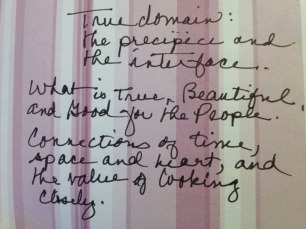 True domain:
the precipice and
the interface.
What is True, Beautiful,
and Good for the People.
Connections of time,
space and heart, and
the value of looking
closely.